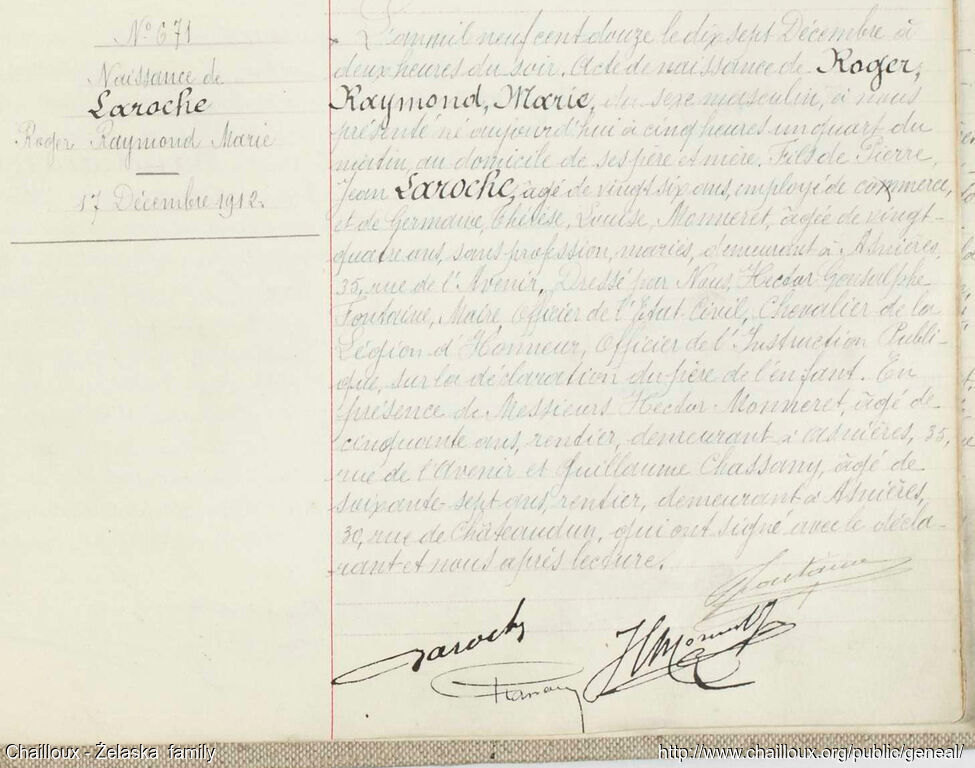 N° 671
Naissance de
Laroche
Roger Raymond Marie
17 Décembre 1912.
L'an mil neuf cent douze le dix sept Décembre à
deux heures du soir. Acte de naissance de Roger,
Raymond, Marie, du sexe masculin, à nous
présenté né aujourd'hui à cinq heures un quart du
matin, au domicile de ses père et mère, Fils de Pierre,
Jean Laroche, âgé de vingt six ans, employé de commerce,
et de Germaine, Thérèse, Louise, Monneret, âgée de vingt-
quatre ans, sans profession, mariés, demeurant à Asnières,
35, rue de l'Avenir. Dressé par Nous, Hector Gonsalphe
Fontaine, Maire, Officier de l'Etat Civil, Chevalier de la
Légion d'Honneur, Officier de l'Instruction Publi-
que, sur la déclaration du père de l'enfant. En
présence de Messieurs Hector Monneret, âgé de
cinquante ans, rentier, demeurant à Asnières, 35,
rue de l'Avenir et Guillaume Chassany, âgé de
soixante sept ans, rentier, demeurant à Asnières,
30, rue de Châteaudun, qui ont signé avec le décla-
rant et nous après lecture.
Fontaine
Laroche
HMonneret
Chailloux - Żelaska family
http://www.chailloux.org/public/geneal/